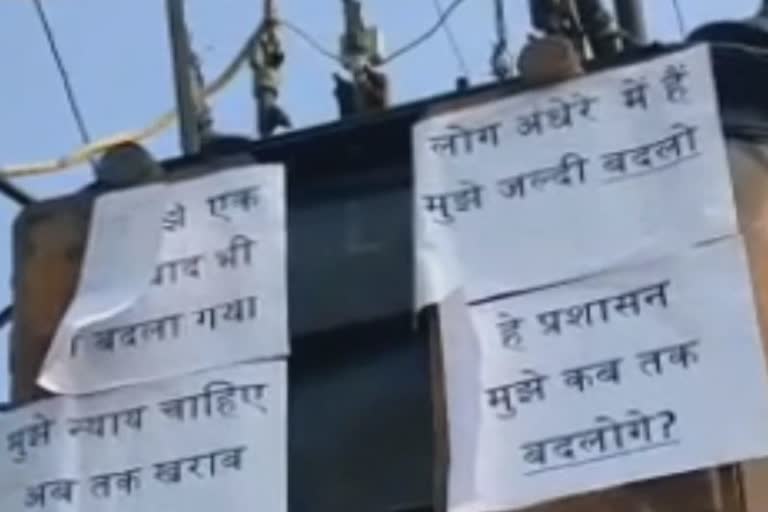 एक
भी
बदला गया
मुझे न्याय चाहिए
अब तक खराब
लोग अंधेरे में हैं
मुझे जल्दी बदलो
हे प्रशासन
मुझे कब तक
बदलोगे?